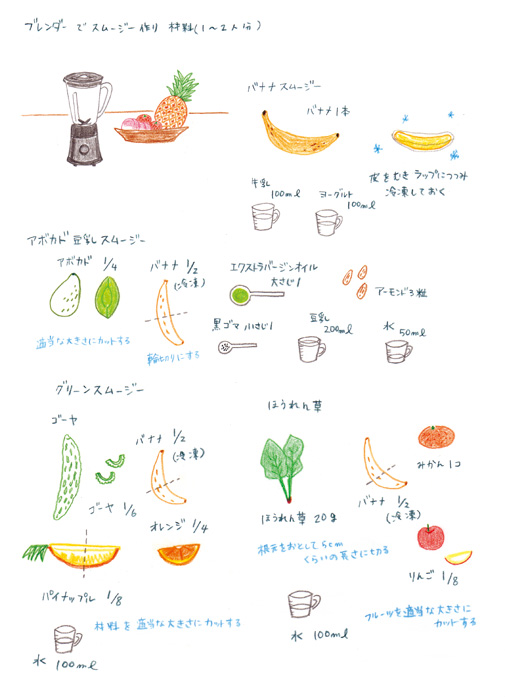 ブレンダーでスムージー作り 材料(1〜2人分)
バナナスムージー
バナナ1本
皮をむきラップにつつみ
冷凍しておく
牛乳
100ml
ヨーグルト
100ml
アボカド豆乳スムージー
アボカド 1/4
適当な大きさにカットする
バナナ 1/2
(冷凍)
輪切りにする
エクストラバージンオイル
大さじ1
アーモンド3粒
黒ゴマ 小さじ1
豆乳
200ml
水
50ml
グリーンスムージー
ゴーヤ
ゴーヤ 1/6
バナナ 1/2
(冷凍)
オレンジ 1/4
パイナップル 1/8
材料を適当な大きさにカットする
水 100ml
ほうれん草
ほうれん草 20g
根元をおとして5cm
くらいの長さに切る
バナナ 1/2
(冷凍)
みかん1コ
りんご 1/8
フルーツを適当な大きさに
カットする
水 100ml